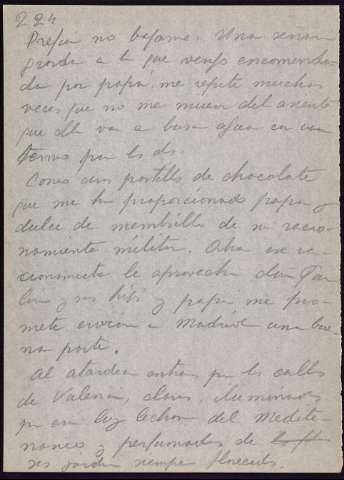 224
Prefiero no bajarme. Una señora
gorda a la que vengo encomenda-
da por papá, me repite muchas
veces que no me mueva del asiento
que ella va a buscar agua en un
termo para los dos.
Comemos pastillas de chocolate
que me ha proporcionado papá y
dulce de membrillo de mi racio-
namiento militar. Ahora ese ra-
cionamiento le aprovecha
y sus hijos y papá me pro-
mete enviar a Madrid una bue-
na parte.
Al atardecer entras por las calles
de Valencia, claras, iluminadas
por esa luz lechosa del Medite-
rráneo y perfumadas de
sus jardines siempre florecidos.